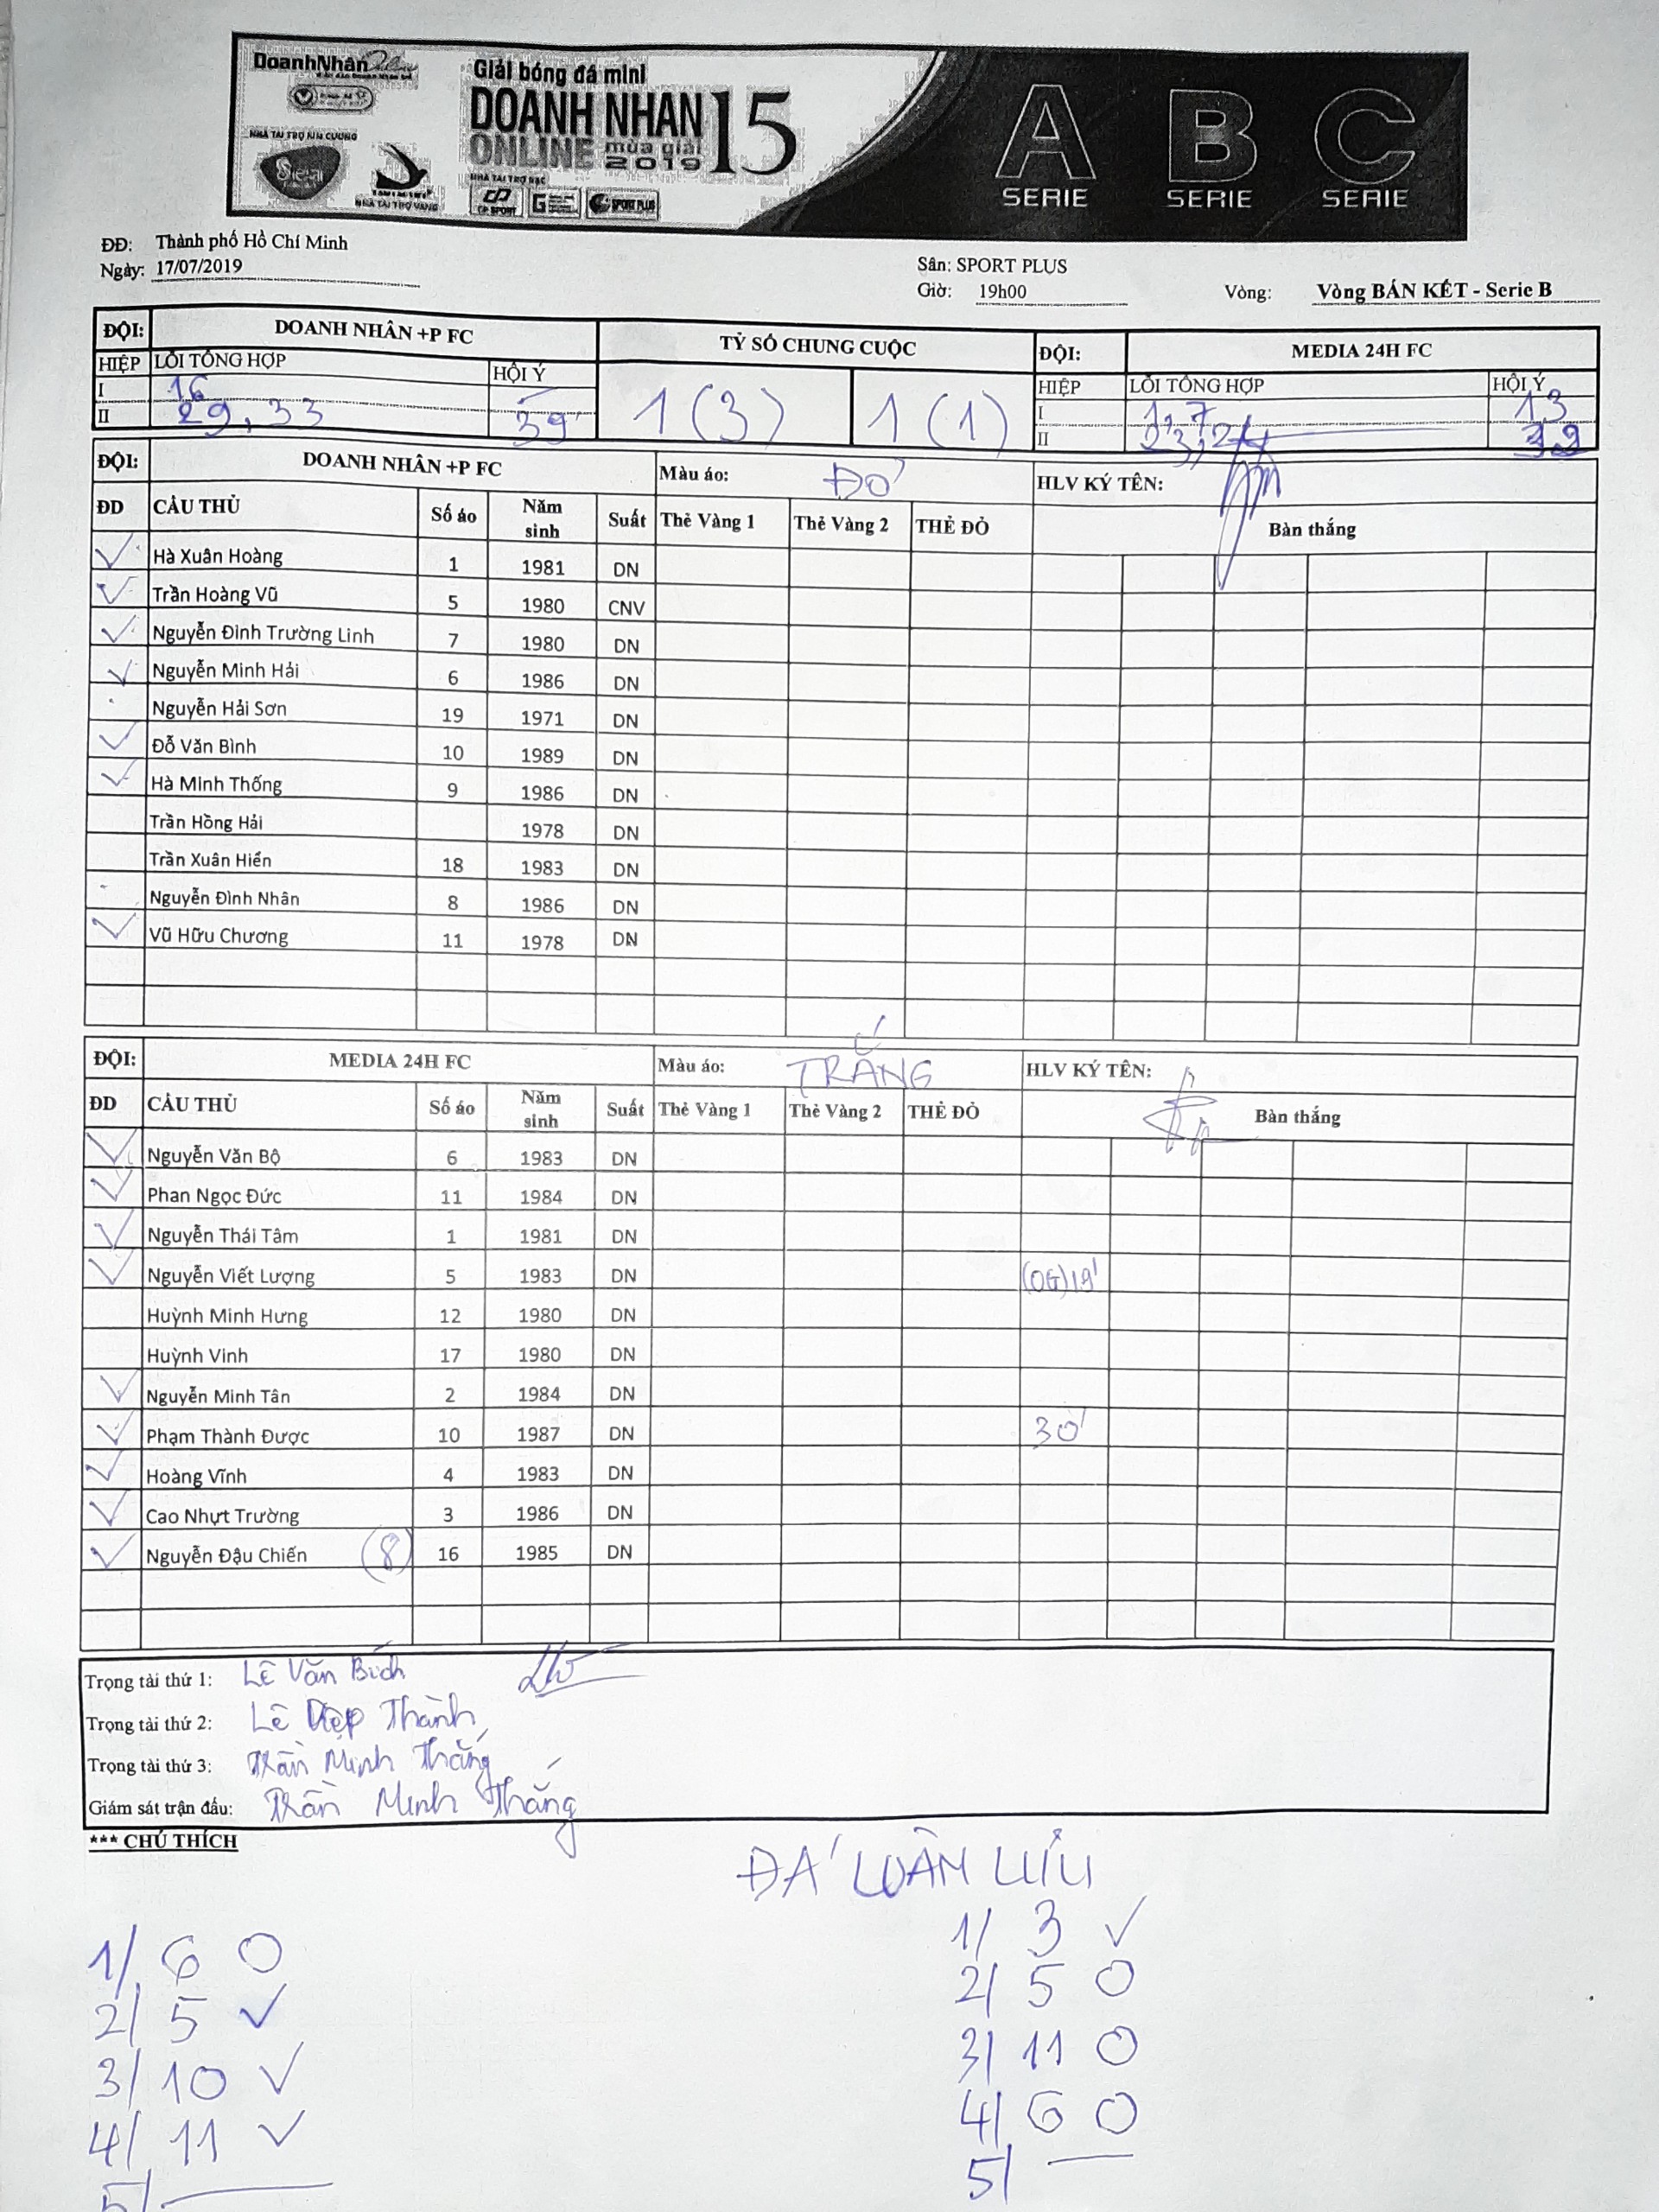 DoanhNhân Online
Giải bóng đá mini
DOANH NHAN 15
ONLINE mùa giải 2019
NHÀ TÀI TRỢ KIM CƯƠNG
NHÀ TÀI TRỢ VÀNG
NHÀ TÀI TRỢ BẠC
CP SPORT
SPORT PLUS
A SERIE B SERIE C SERIE
ĐĐ: Thành phố Hồ Chí Minh
Ngày: 17/07/2019
Sân: SPORT PLUS
Giờ: 19h00 Vòng: Vòng BÁN KẾT - Serie B
ĐỘI: DOANH NHÂN +P FC TỶ SỐ CHUNG CUỘC ĐỘI: MEDIA 24H FC
HIỆP LỖI TỔNG HỢP HỘI Ý 1 (3) 1 (1) HIỆP LỖI TỔNG HỢP HỘI Ý
I 16 I 1, 7 13
II 29, 33 39' II 23, 24 39
ĐỘI: DOANH NHÂN +P FC Màu áo: ĐỎ HLV KÝ TÊN:
ĐD CẦU THỦ Số áo Năm sinh Suất Thẻ Vàng 1 Thẻ Vàng 2 THẺ ĐỎ Bàn thắng
✓ Hà Xuân Hoàng 1 1981 DN
✓ Trần Hoàng Vũ 5 1980 CNV
✓ Nguyễn Đình Trường Linh 7 1980 DN
✓ Nguyễn Minh Hải 6 1986 DN
Nguyễn Hải Sơn 19 1971 DN
✓ Đỗ Văn Bình 10 1989 DN
✓ Hà Minh Thống 9 1986 DN
Trần Hồng Hải 1978 DN
Trần Xuân Hiển 18 1983 DN
Nguyễn Đình Nhân 8 1986 DN
✓ Vũ Hữu Chương 11 1978 DN
ĐỘI: MEDIA 24H FC Màu áo: TRẮNG HLV KÝ TÊN:
ĐD CẦU THỦ Số áo Năm sinh Suất Thẻ Vàng 1 Thẻ Vàng 2 THẺ ĐỎ Bàn thắng
✓ Nguyễn Văn Bộ 6 1983 DN
✓ Phan Ngọc Đức 11 1984 DN
✓ Nguyễn Thái Tâm 1 1981 DN
✓ Nguyễn Viết Lượng 5 1983 DN (OG) 19'
Huỳnh Minh Hưng 12 1980 DN
Huỳnh Vinh 17 1980 DN
✓ Nguyễn Minh Tân 2 1984 DN
✓ Phạm Thành Được 10 1987 DN 30'
✓ Hoàng Vĩnh 4 1983 DN
✓ Cao Nhựt Trường 3 1986 DN
✓ Nguyễn Đậu Chiến (8) 16 1985 DN
Trọng tài thứ 1: Lê Văn Bích
Trọng tài thứ 2: Lê Diệp Thành
Trọng tài thứ 3: Trần Minh Thắng
Giám sát trận đấu: Trần Minh Thắng
*** CHÚ THÍCH
ĐÁ LUÂN LƯU
1/ 6 O 1/ 3 ✓
2/ 5 ✓ 2/ 5 O
3/ 10 ✓ 3/ 11 O
4/ 11 ✓ 4/ 6 O
5/ 5/